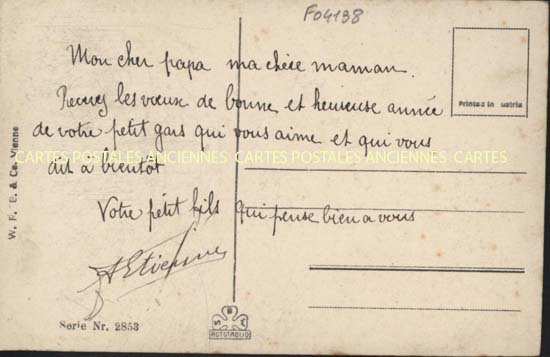 F04138
Mon cher papa ma chère maman.
Recevez les vœux de bonne et heureuse année
de votre petit gars qui vous aime et qui vous
dit à bientôt
Votre petit fils qui pense bien a vous
Etienne
Printed in ustria
W. F. B. & Co. Vienne
CARTES POSTALES ANCIENNES CARTES POSTALES ANCIENNES CARTES
Serie Nr. 2853